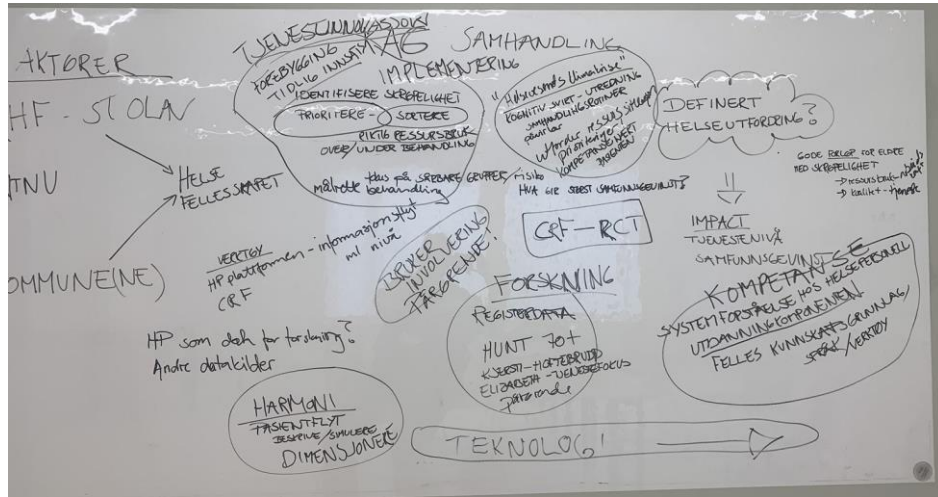 AKTØRER
HF - ST OLAV
NTNU
KOMMUNE(NE)
HELSE
FELLESSKAPET
TJENESTEINNOVASJON
FOREBYGGING
TIDLIG INNSATS
IDENTIFISERE SKRØPELIGHET
PRIORITERE - SORTERE
RIKTIG RESSURSBRUK
OVER/UNDER BEHANDLING
målrette fokus på SÅRBARE GRUPPER/risiko
behandling
SAMHANDLING
IMPLEMENTERING
KOGNITIV SVIKT - UTREDNING
SAMHANDLINGSRUTINER
påvirker
prioriteringer
KOMPETANSENIVÅET
HVA GIR STØRST SAMFUNNSGEVINST?
DEFINERT
HELSEUTFORDRING?
GODE FORLØP FOR ELDRE
MED SKRØPELIGHET
IMPACT
TJENESTENIVÅ
SAMFUNNSGEVINST
VERKTØY
HP plattformen - informasjonsflyt
ml nivå
CRF
HP som data for forskning?
Andre datakilder
BRUKER
INVOLVERING
PÅRØRENDE!
CRF - RCT
FORSKNING
REGISTERDATA
HUNT 70+
KJERSTI - HOFTEBRUDD
ELIZABETH - TJENESTEFOKUS
pårørende
KOMPETANSE
SYSTEMFORSTÅELSE HOS HELSEPERSONELL
UTDANNINGKOMPONENTEN
FELLES KUNNSKAPSGRUNNLAG/
SPRÅK/VERKTØY
HARMONI
PASIENTFLYT
BESKRIVE/SIMULERE
DIMENSJONERE
TEKNOLOGI